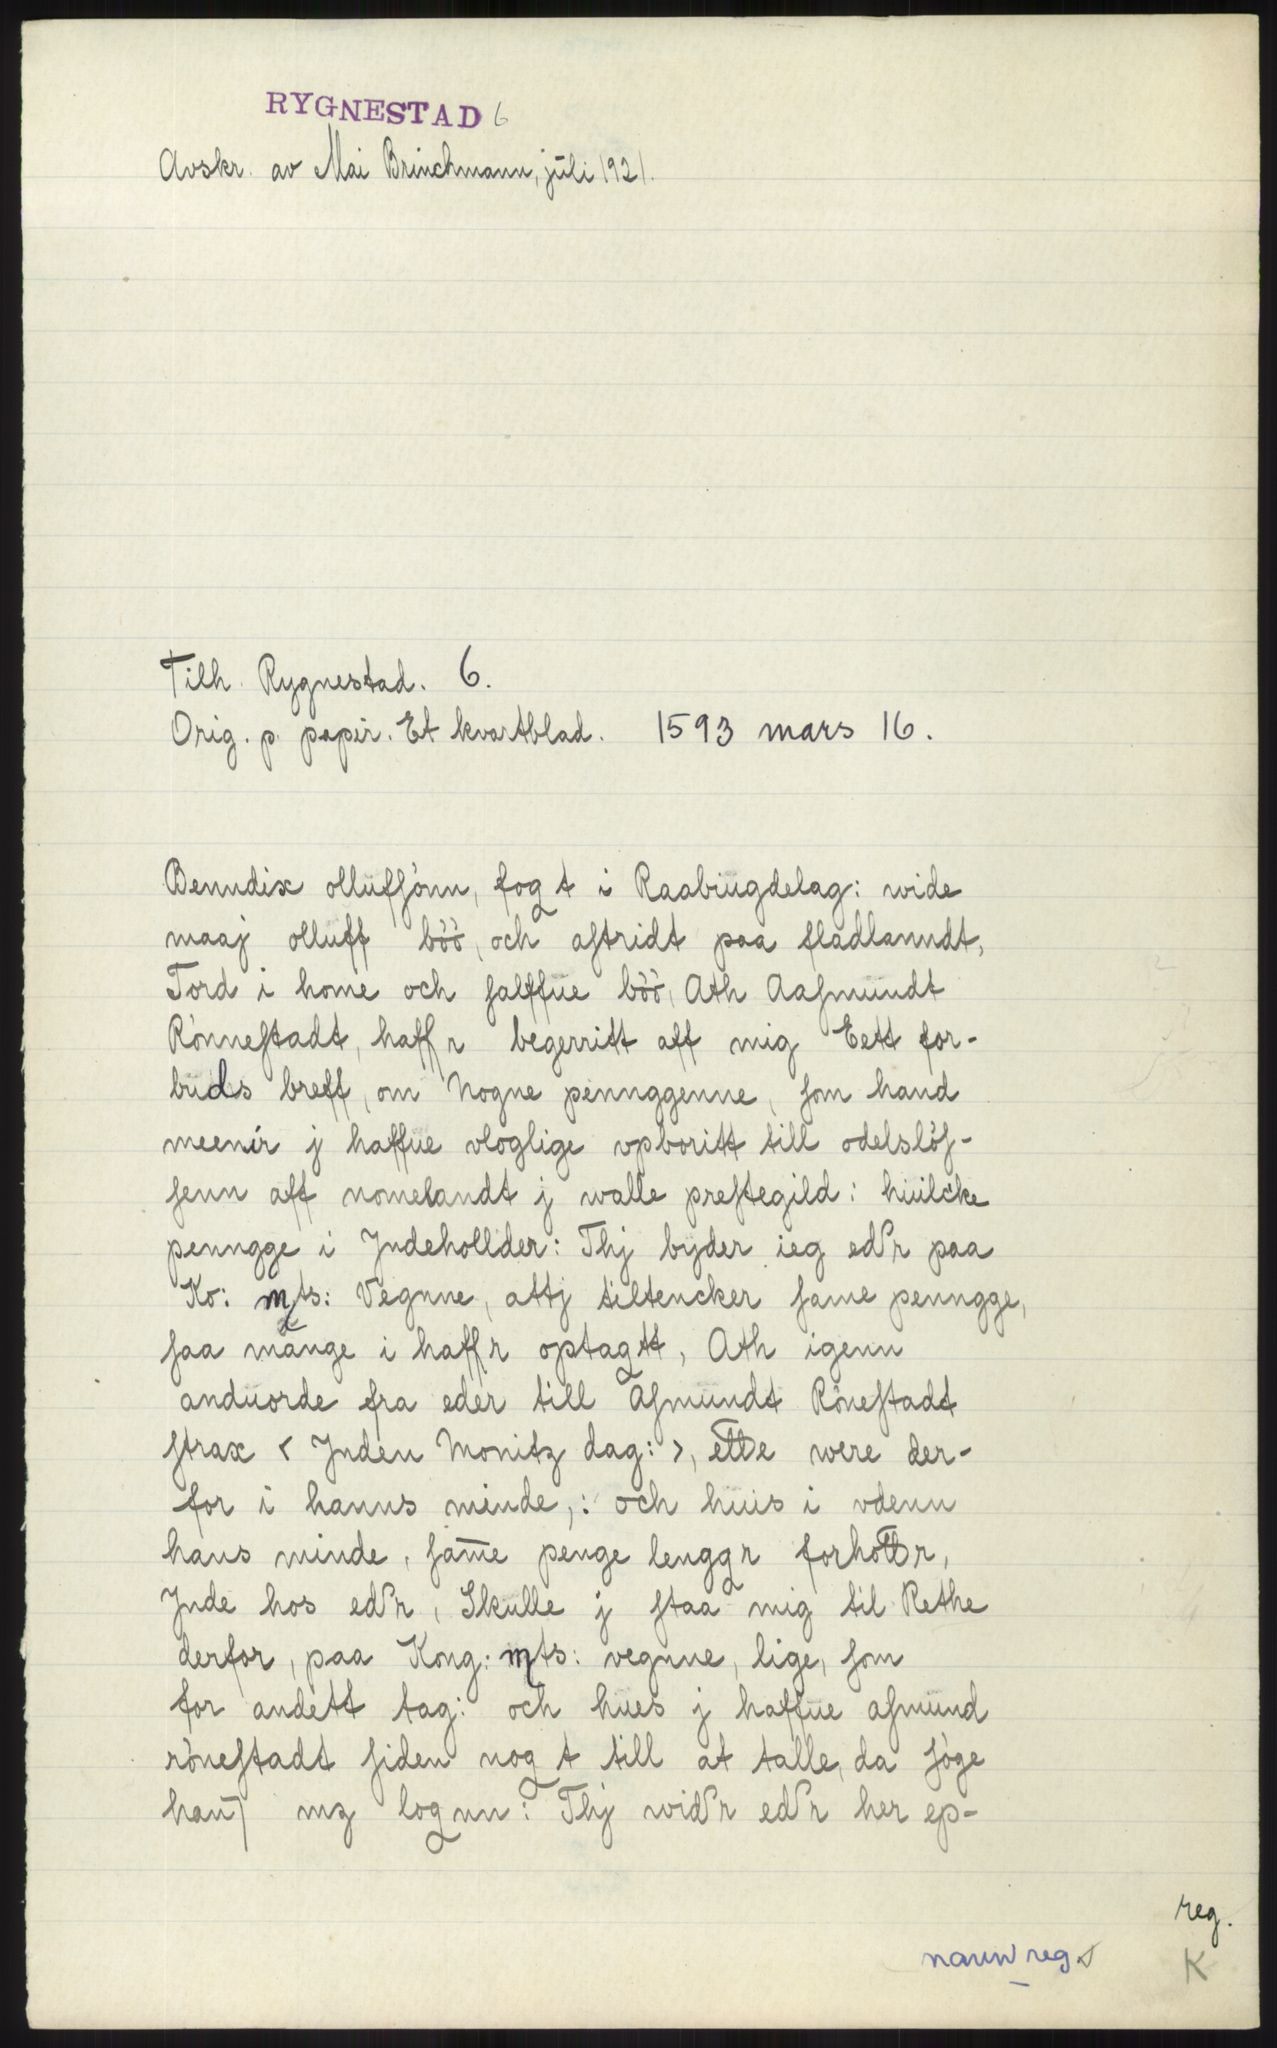 RYGNESTAD 6
Avskr. av Mai Brinchmann, juli 1921.
Tilh. Rygnestad. 6.
Orig. p. papir. Et kvartblad. 1593 mars 16.
Benndix olluffſönn, fogt i Raabiugdelag: wide
maaj olluff böö, och aſtridt paa fladlanndt,
Tord i home och ſalffue böö, Ath Aaſmundt
Rönneſtadt, haffr begerritt aff mig Eett for-
buds breff, om Nogne pennggenne, ſom hand
meenir j haffue vloglige vpboritt till odelslöſ-
ſenn aff nomelandt j walle preſtegild: huilcke
penngge i Jndehollder: Thj byder ieg eder paa
Ko: mts: Vegnne, attj tiltencker ſame penngge,
ſaa mange i haffr optagtt, Ath igenn
anduorde fra eder till Aſmundt Röneſtadt
ſtrax < Jnden Monitz dag: >, ette were der-
for i hanns minde,: och huis i vdenn
hans minde, ſame penge lenggr forhottr,
Jnde hos eder, Skulle j ſtaa mig til Rethe
derfor, paa Kong: mts: vegnne, lige, ſom
for andett tag: och hues j haffue aſmund
röneſtadt ſiden nogt till at talle, da ſöge
han mz lognn: Thj wider eder her ep-
reg.
navnreg.
K